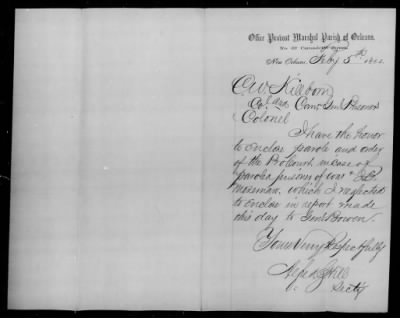 Office Provost Marshal Parish of Orleans,
New Orleans, Feby 5th 186
C.W. Killborn
Col and Com. Genl Prisoners
Colonel
I have the honor
to enclose parole and order
of the in case of
paroled prisoner of war
which I neglected
to enclose in report made
this day to Genl Bowen.
Yours Very Respectfully
Secty